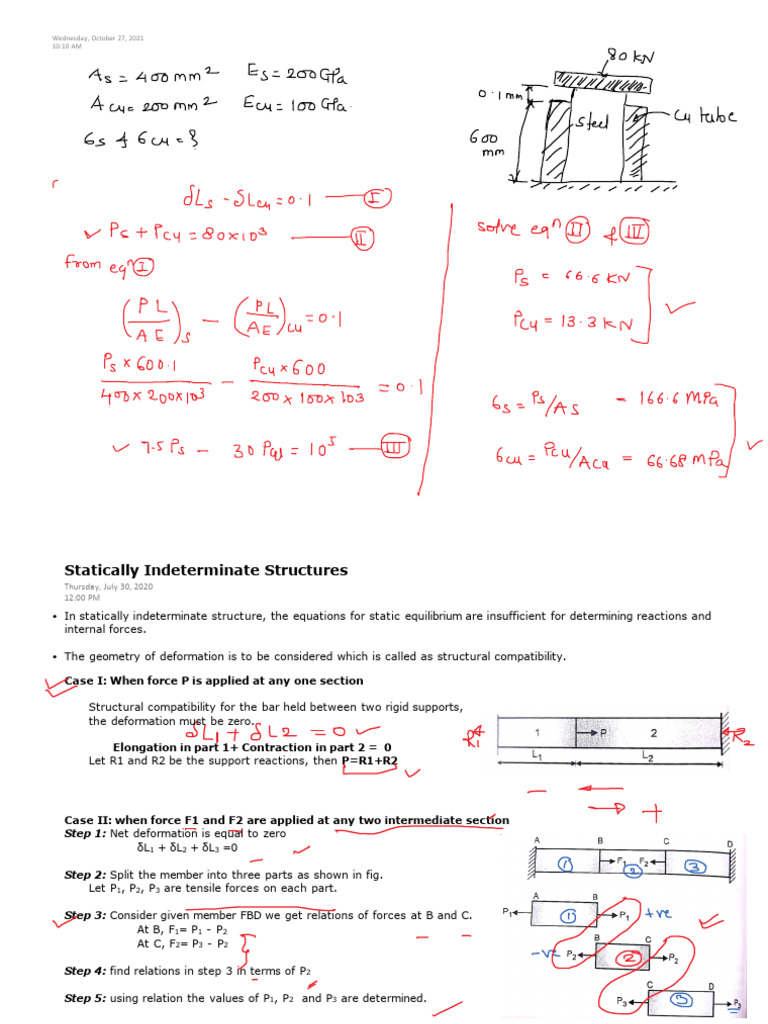 Wednesday, October 27, 2021
10:10 AM
As = 400 mm² Es = 200 GPa
Acu = 200 mm² Ecu = 100 GPa.
σs & σcu = ?
80 KN
0.1 mm
steel
Cu tube
600
mm
δLs - δLcu = 0.1 — I
✓ Ps + Pcu = 80×10³ — II
from eqⁿ I
(PL/AE)s - (PL/AE)cu = 0.1
Ps × 600.1 / 400×200×10³ - Pcu × 600 / 200×100×103 = 0.1
✓ 7.5Ps - 30 Pcu = 10⁵ — III
solve eqⁿ II & III
Ps = 66.6 KN
Pcu = 13.3 KN ✓
σs = Ps/As = 166.6 MPa
σcu = Pcu/Acu = 66.68 MPa ✓
Statically Indeterminate Structures
Thursday, July 30, 2020
12:00 PM
• In statically indeterminate structure, the equations for static equilibrium are insufficient for determining reactions and
internal forces.
• The geometry of deformation is to be considered which is called as structural compatibility.
Case I: When force P is applied at any one section
Structural compatibility for the bar held between two rigid supports,
the deformation must be zero.
δL1 + δL2 = 0 ✓
Elongation in part 1+ Contraction in part 2 = 0
Let R1 and R2 be the support reactions, then P=R1+R2
R1 1 P 2 R2
L1 L2
- ←
→ +
Case II: when force F1 and F2 are applied at any two intermediate section
Step 1: Net deformation is equal to zero
δL1 + δL2 + δL3 =0
Step 2: Split the member into three parts as shown in fig.
Let P1, P2, P3 are tensile forces on each part.
Step 3: Consider given member FBD we get relations of forces at B and C.
At B, F1= P1 - P2
At C, F2= P3 - P2
Step 4: find relations in step 3 in terms of P2
Step 5: using relation the values of P1, P2 and P3 are determined.
A B C D
1 F1 2 F2 3
A B
P1 1 P1 +ve
B C
-ve P2 2 P2
C D
P3 3 P3